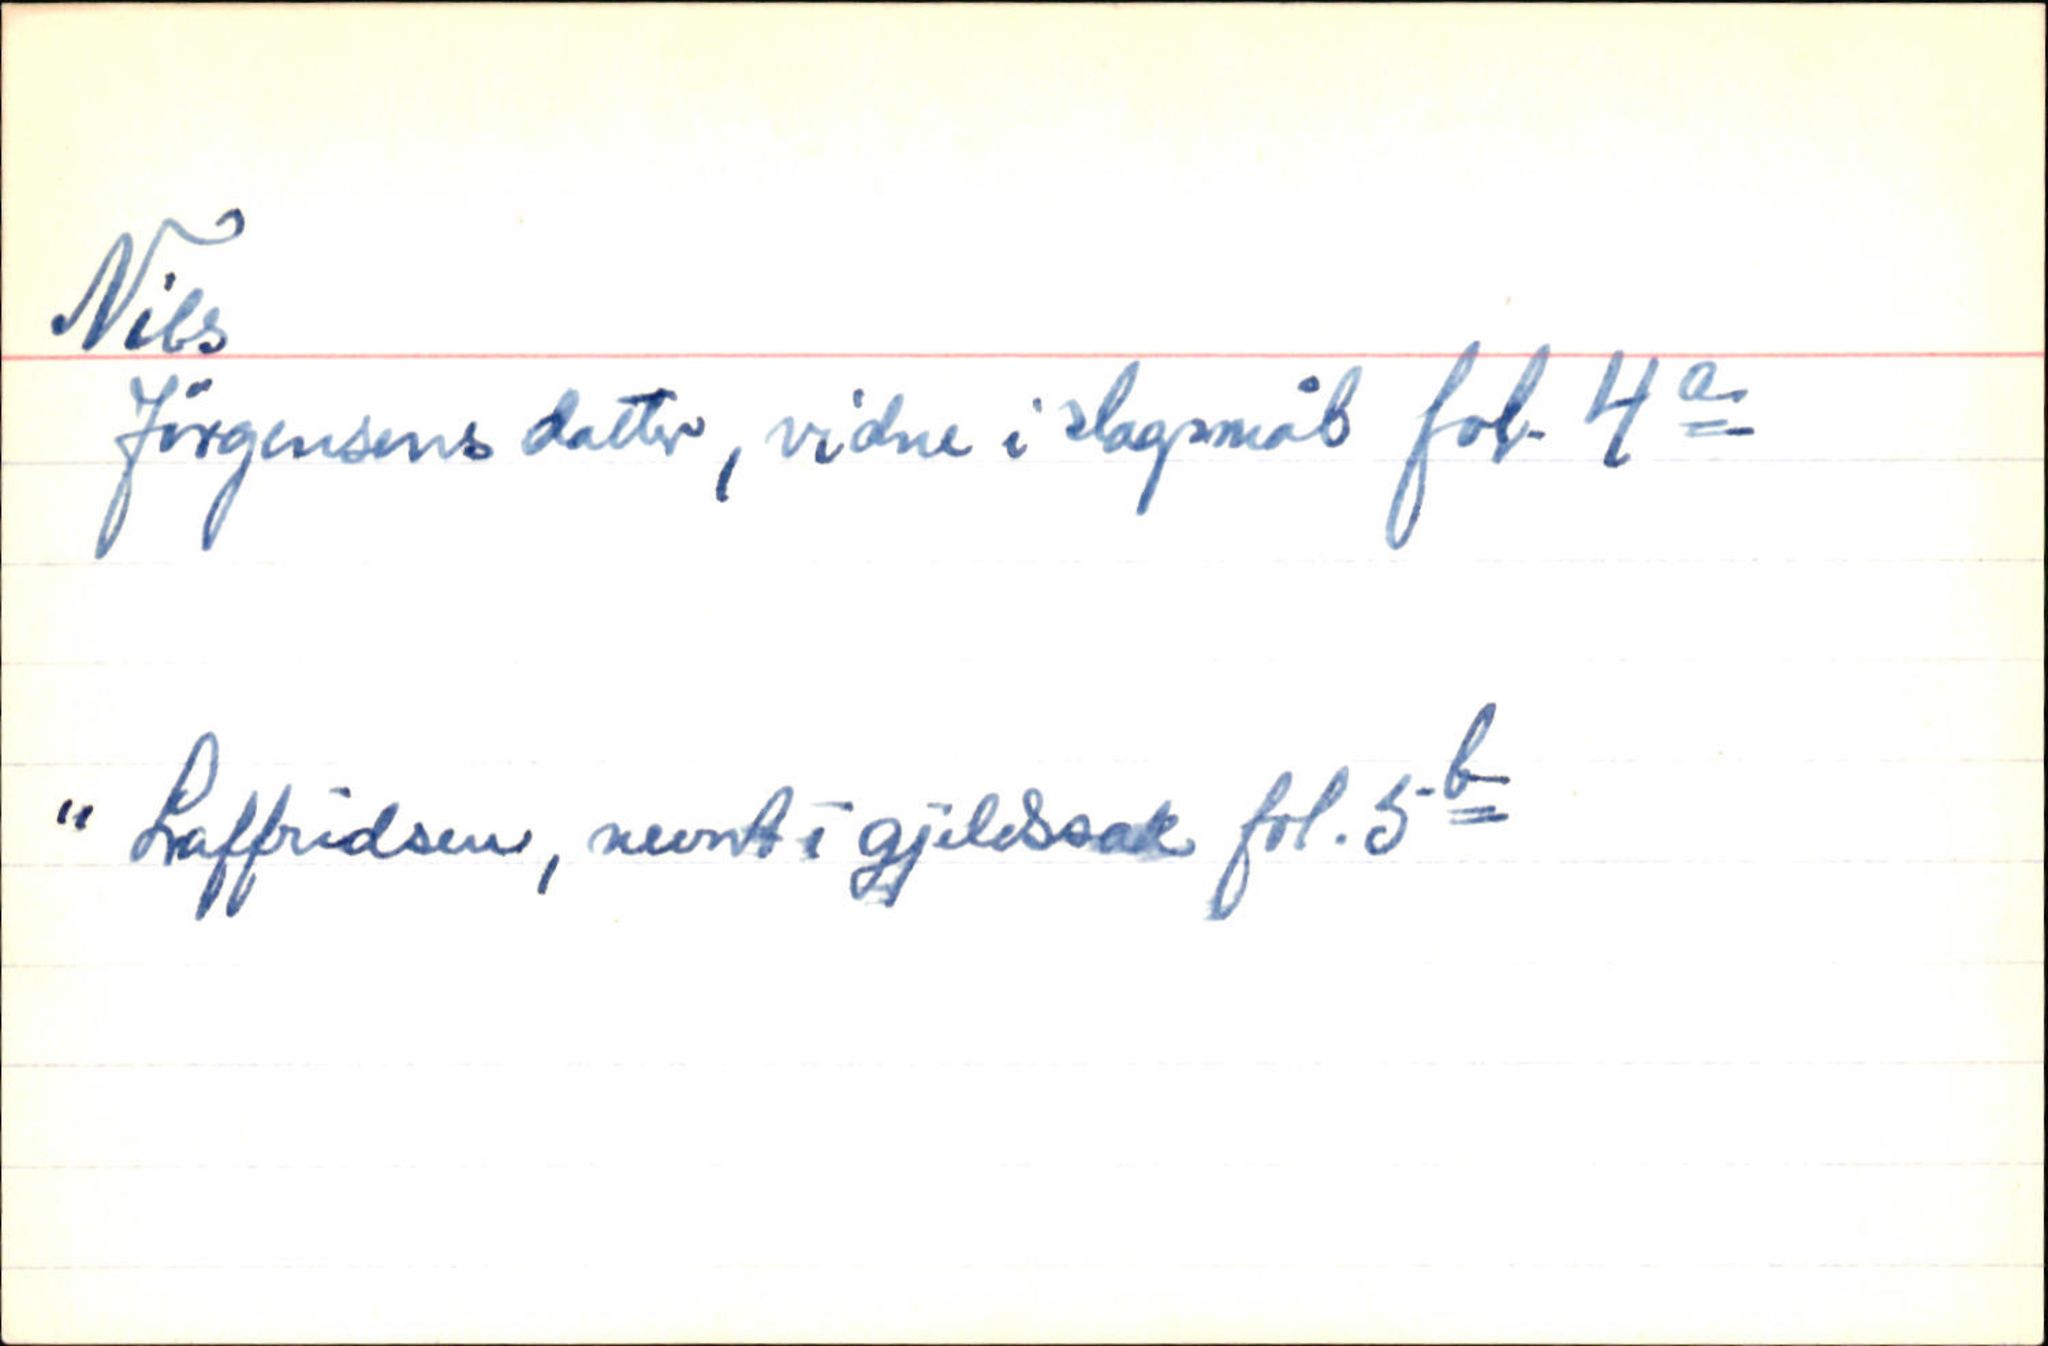 Nils
Jörgensens datter, vidne i slagsmål fol. 4 a
" Laffridsen, nevnt i gjeldssak fol. 5 b